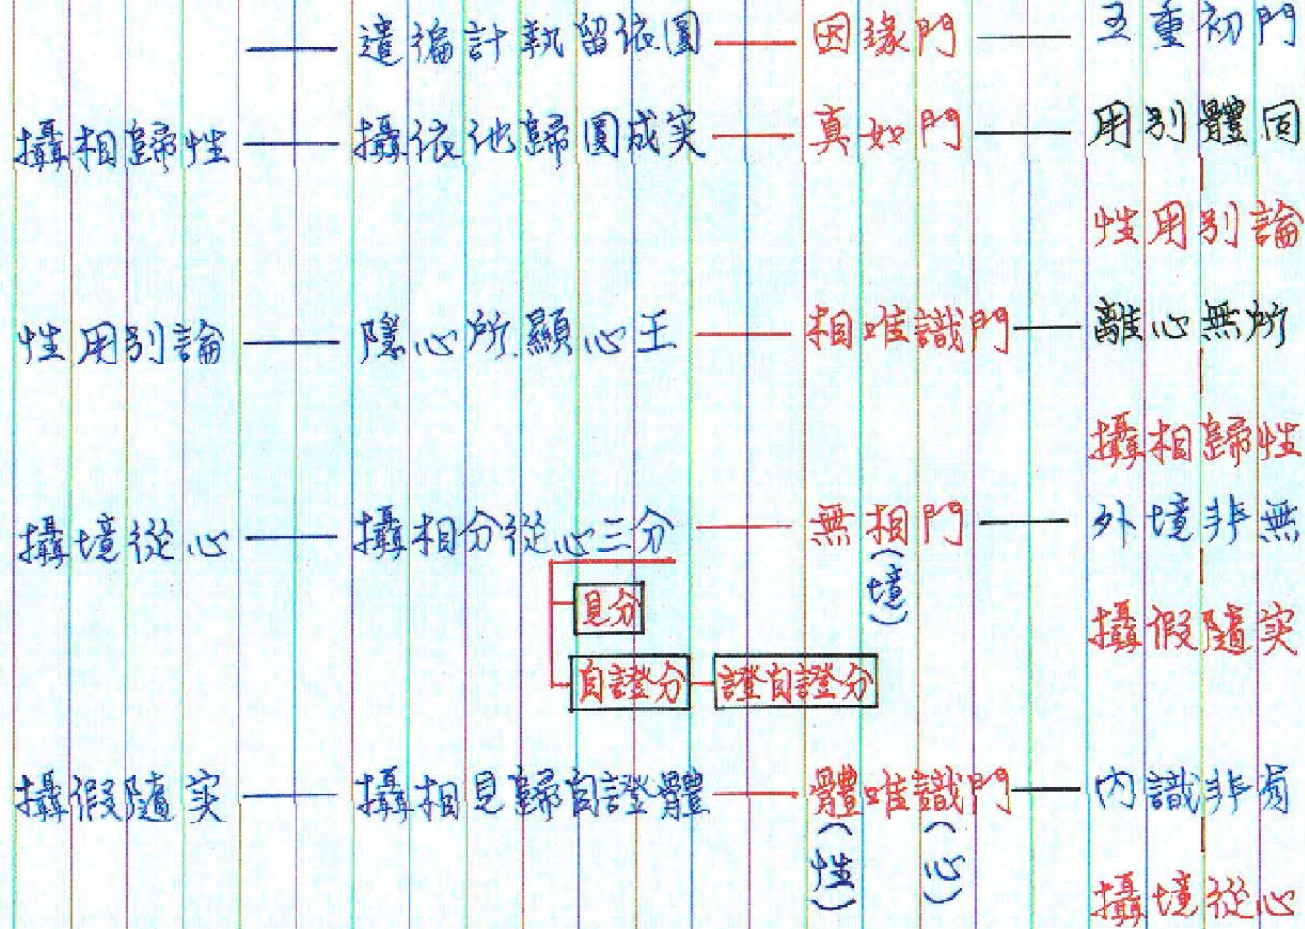 遣徧計執留依圓 因緣門 五重初門
攝相歸性 攝依他歸圓成实 真如門 用別體同
性用別論
性用別論 隱心所顯心王 相唯識門 離心無所
攝相歸性
攝境從心 攝相分從心三分 無相門 外境非無
(境)
見分
攝假隨实
自證分 證自證分
攝假隨实 攝相見歸自證體 體唯識門 內識非有
(性) (心)
攝境從心